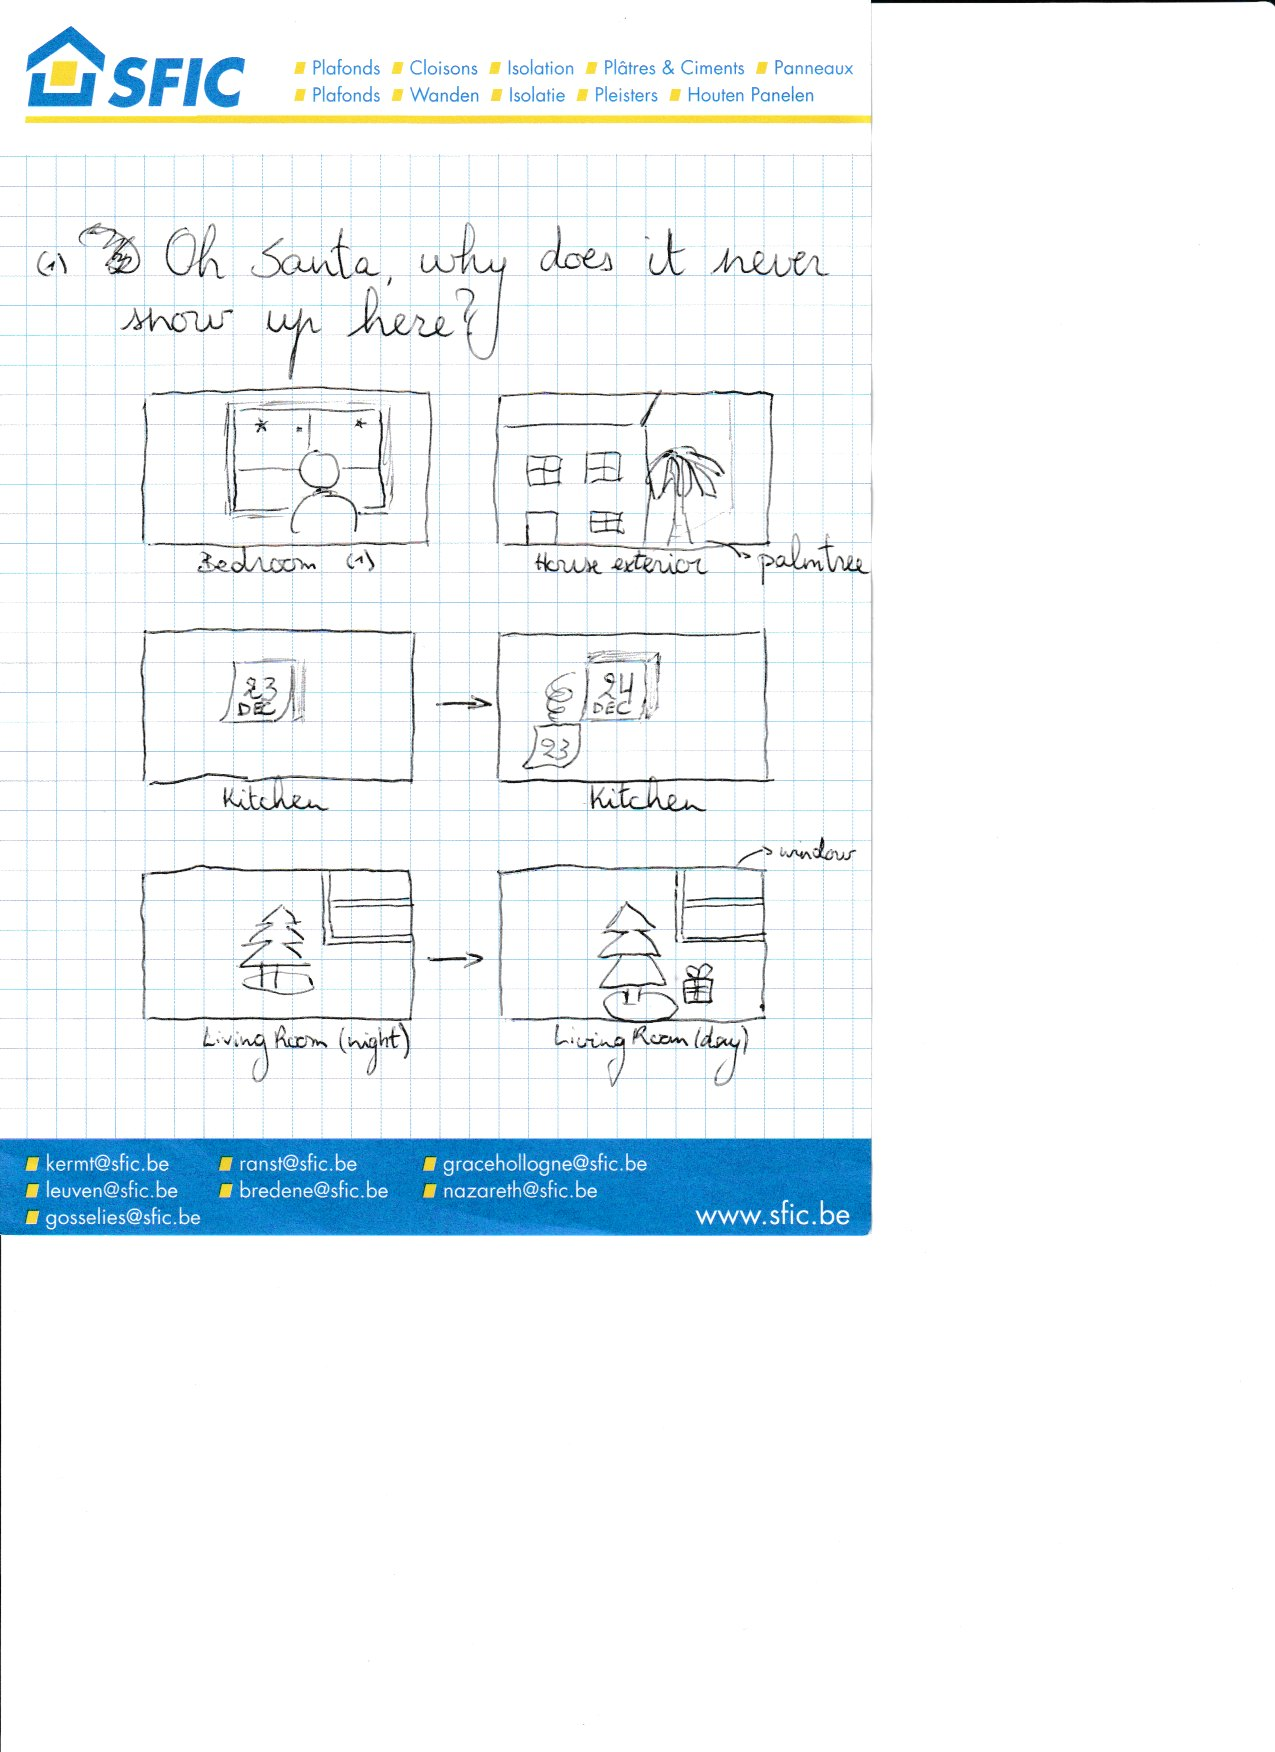 SFIC
Plafonds Cloisons Isolation Plâtres & Ciments Panneaux
Plafonds Wanden Isolatie Pleisters Houten Panelen
(1) Oh Santa, why does it never
snow up here?
Bedroom (1)
House exterior
palmtree
23
DEC
24
DEC
23
Kitchen
Kitchen
window
Living Room (night)
Living Room (day)
kermt@sfic.be ranst@sfic.be gracehollogne@sfic.be
leuven@sfic.be bredene@sfic.be nazareth@sfic.be
gosselies@sfic.be
www.sfic.be